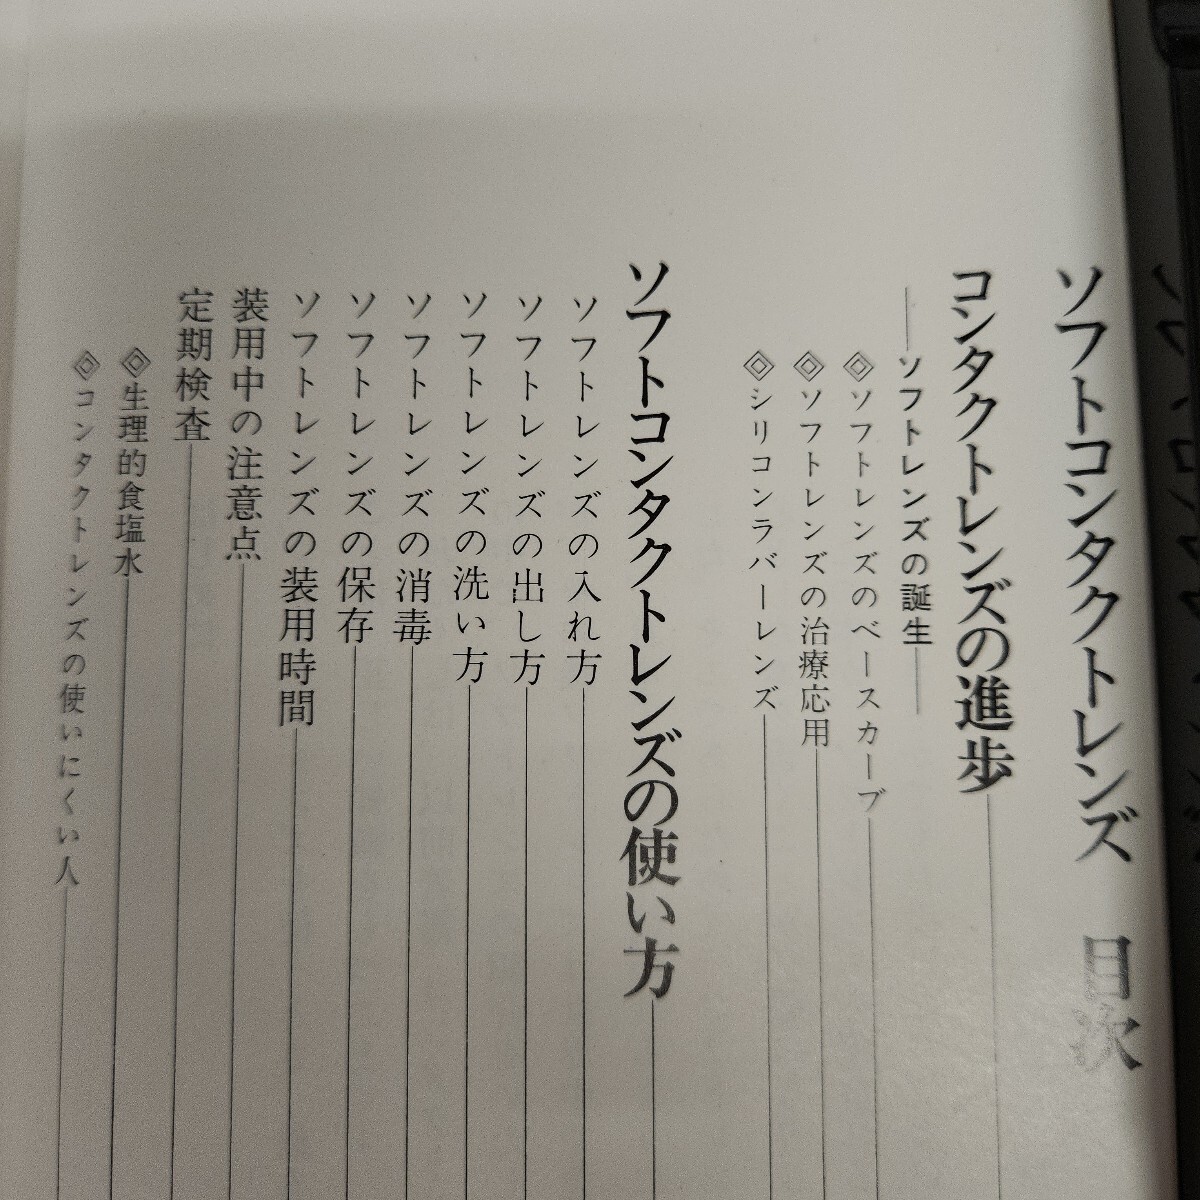 ソフトコンタクトレンズ 目次
コンタクトレンズの進歩
──ソフトレンズの誕生──
◈ソフトレンズのベースカーブ
◈ソフトレンズの治療応用
◈シリコンラバーレンズ
ソフトコンタクトレンズの使い方
ソフトレンズの入れ方
ソフトレンズの出し方
ソフトレンズの洗い方
ソフトレンズの消毒
ソフトレンズの保存
ソフトレンズの装用時間
装用中の注意点
定期検査
◈生理的食塩水
◈コンタクトレンズの使いにくい人